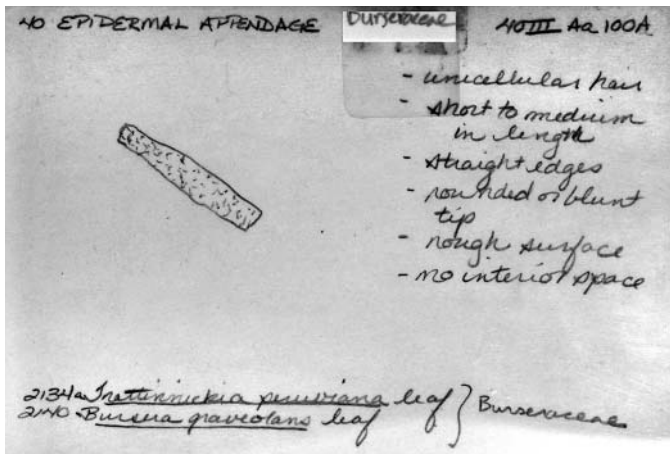 40 EPIDERMAL APPENDAGE
Burseraceae
40III Aa 100A
- unicellular hair
- short to medium
in length
- straight edges
- rounded or blunt
tip
- rough surface
- no interior space
2134a Trattinnickia peruviana leaf
2140 Bursera graveolans leaf
} Burseraceae